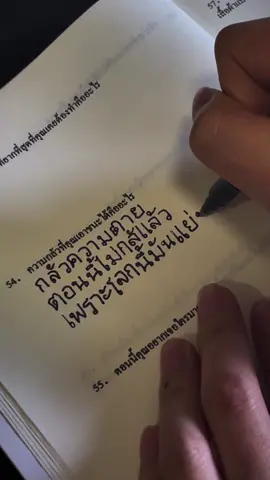 57.
ที่ยากที่สุดที่คุณเคยต้องทำคืออะไร
54. ความกลัวที่คุณเอาชนะได้คืออะไร
กลัวความตาย
ตอนนี้ไม่กลัวแล้ว
เพราะโลกนี้มันแย่
55. ตอนนี้คุณอยากเจอใครมาก